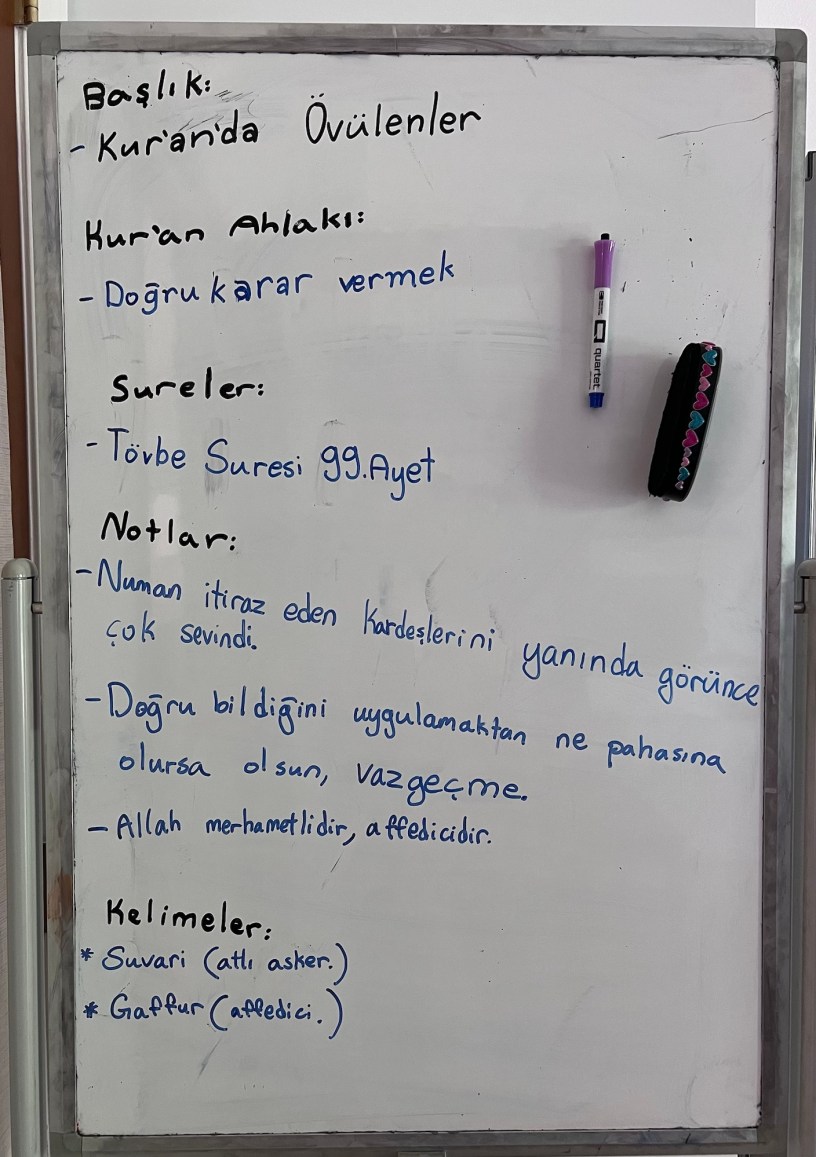 Başlık:
- Kur'an'da Övülenler
Kur'an Ahlakı:
- Doğru karar vermek
Sureler:
- Tövbe Suresi 99.Ayet
Notlar:
- Numan itiraz eden kardeşlerini yanında görünce
çok sevindi.
- Doğru bildiğini uygulamaktan ne pahasına
olursa olsun, vazgeçme.
- Allah merhametlidir, affedicidir.
Kelimeler:
* Suvari (atlı asker.)
* Gaffur (affedici.)
quartet